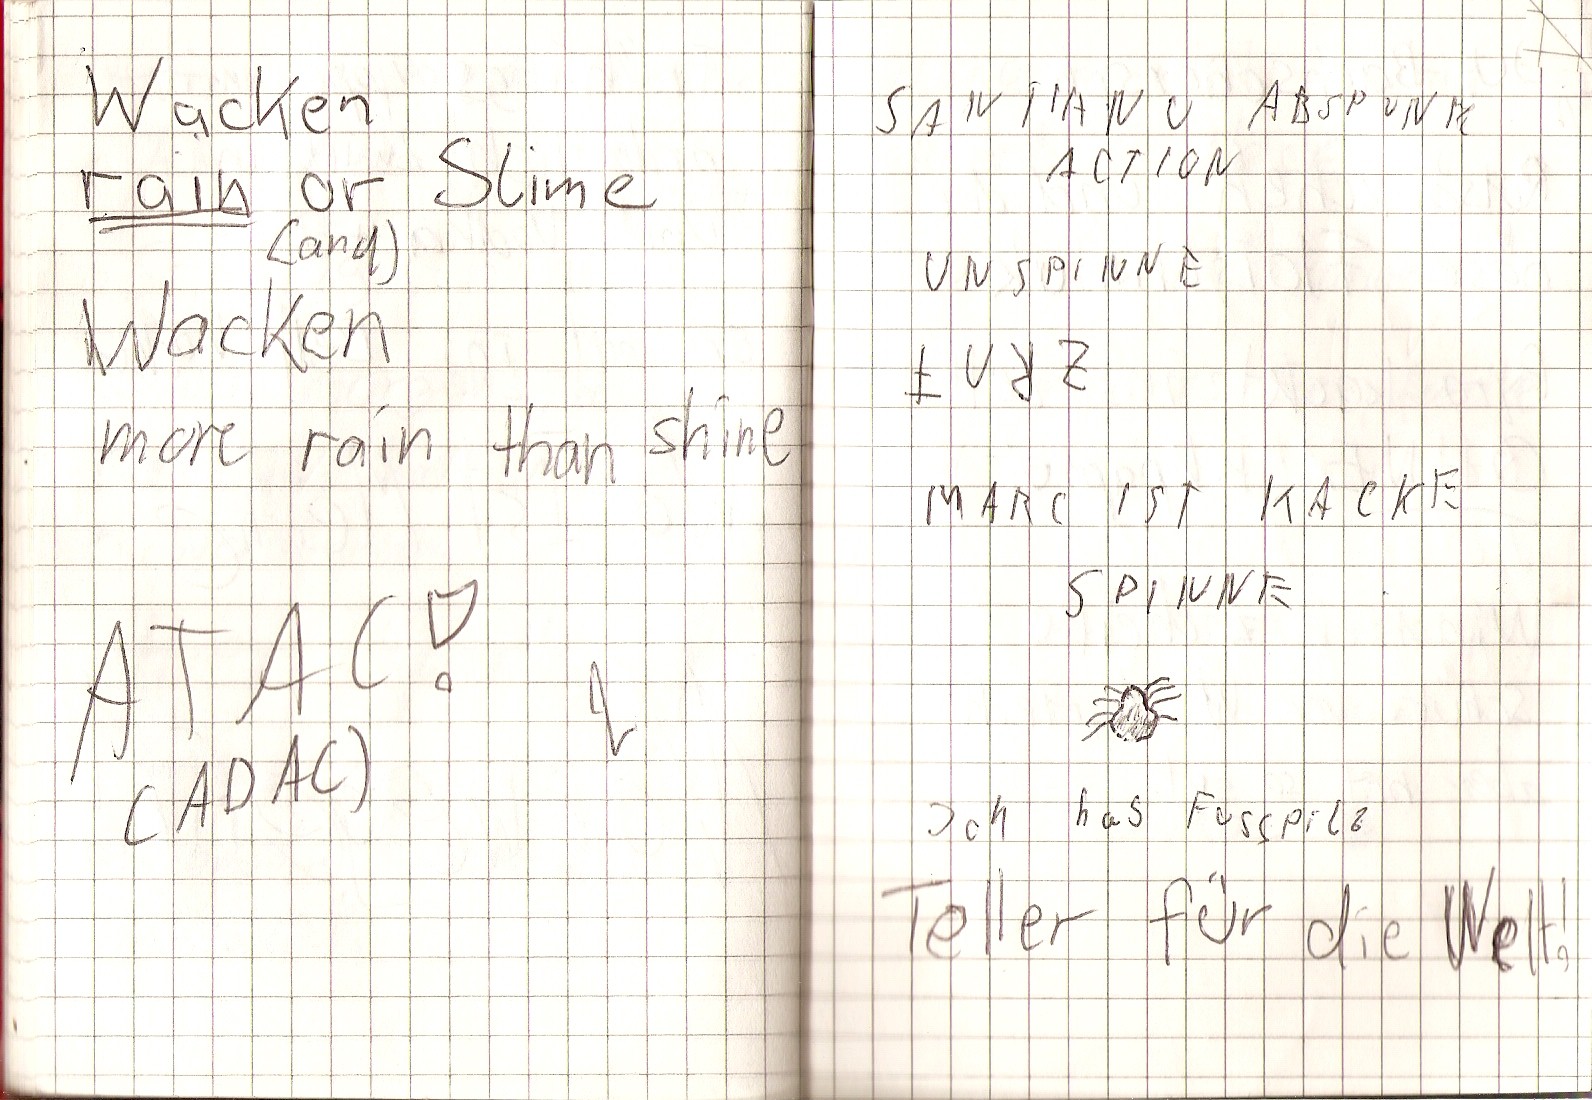 Wacken
rain or Slime
(and)
Wacken
more rain than shine
ATAC!
(ADAC)
SANTIANO ABSPUNK
ACTION
UNSPINNE
FURZ
MARC IST KACKE
SPINNE
Ich hab Fusspilz
Teller für die Welt!